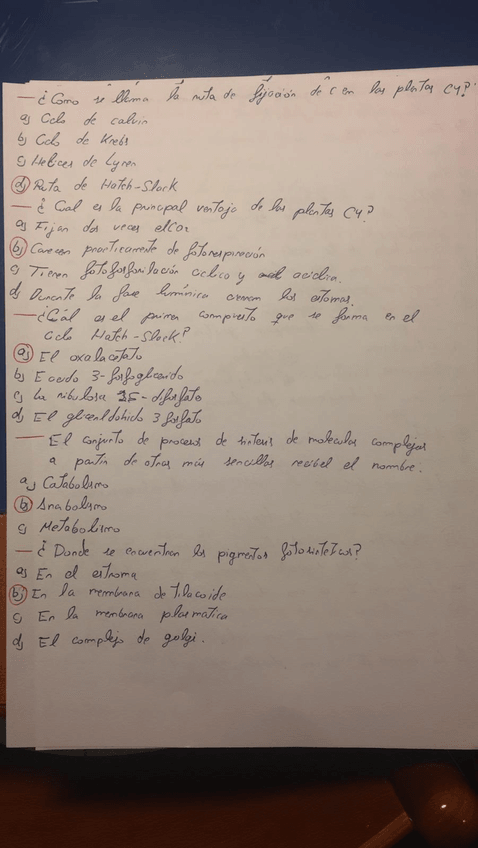 — ¿Como se llama la ruta de fijación de C en las plantas C4?
a) Ciclo de calvin
b) Ciclo de Krebs
c) Helices de Lynen
d) Ruta de Hatch-Slack
— ¿Cual es la principal ventaja de las plantas C4?
a) Fijan dos veces el CO2
b) Carecen practicamente de fotorrespiración
c) Tienen fotofosforilación ciclica y acíclica.
d) Durante la fase lumínica cierran los estomas.
— ¿Cuál es el primer compuesto que se forma en el
ciclo Hatch-Slack?
a) El oxalacetato
b) El acido 3-fosfoglicerido
c) La ribulosa 1,5-difosfato
d) El gliceraldehido 3 fosfato
— El conjunto de procesos de sintesis de moleculas complejas
a partir de otras más sencillas recibe el nombre:
a) Catabolismo
b) Anabolismo
c) Metabolismo
— ¿Donde se encuentran los pigmentos fotosinteticos?
a) En el estroma
b) En la membrana de tilacoide
c) En la membrana plasmatica
d) El complejo de golgi.